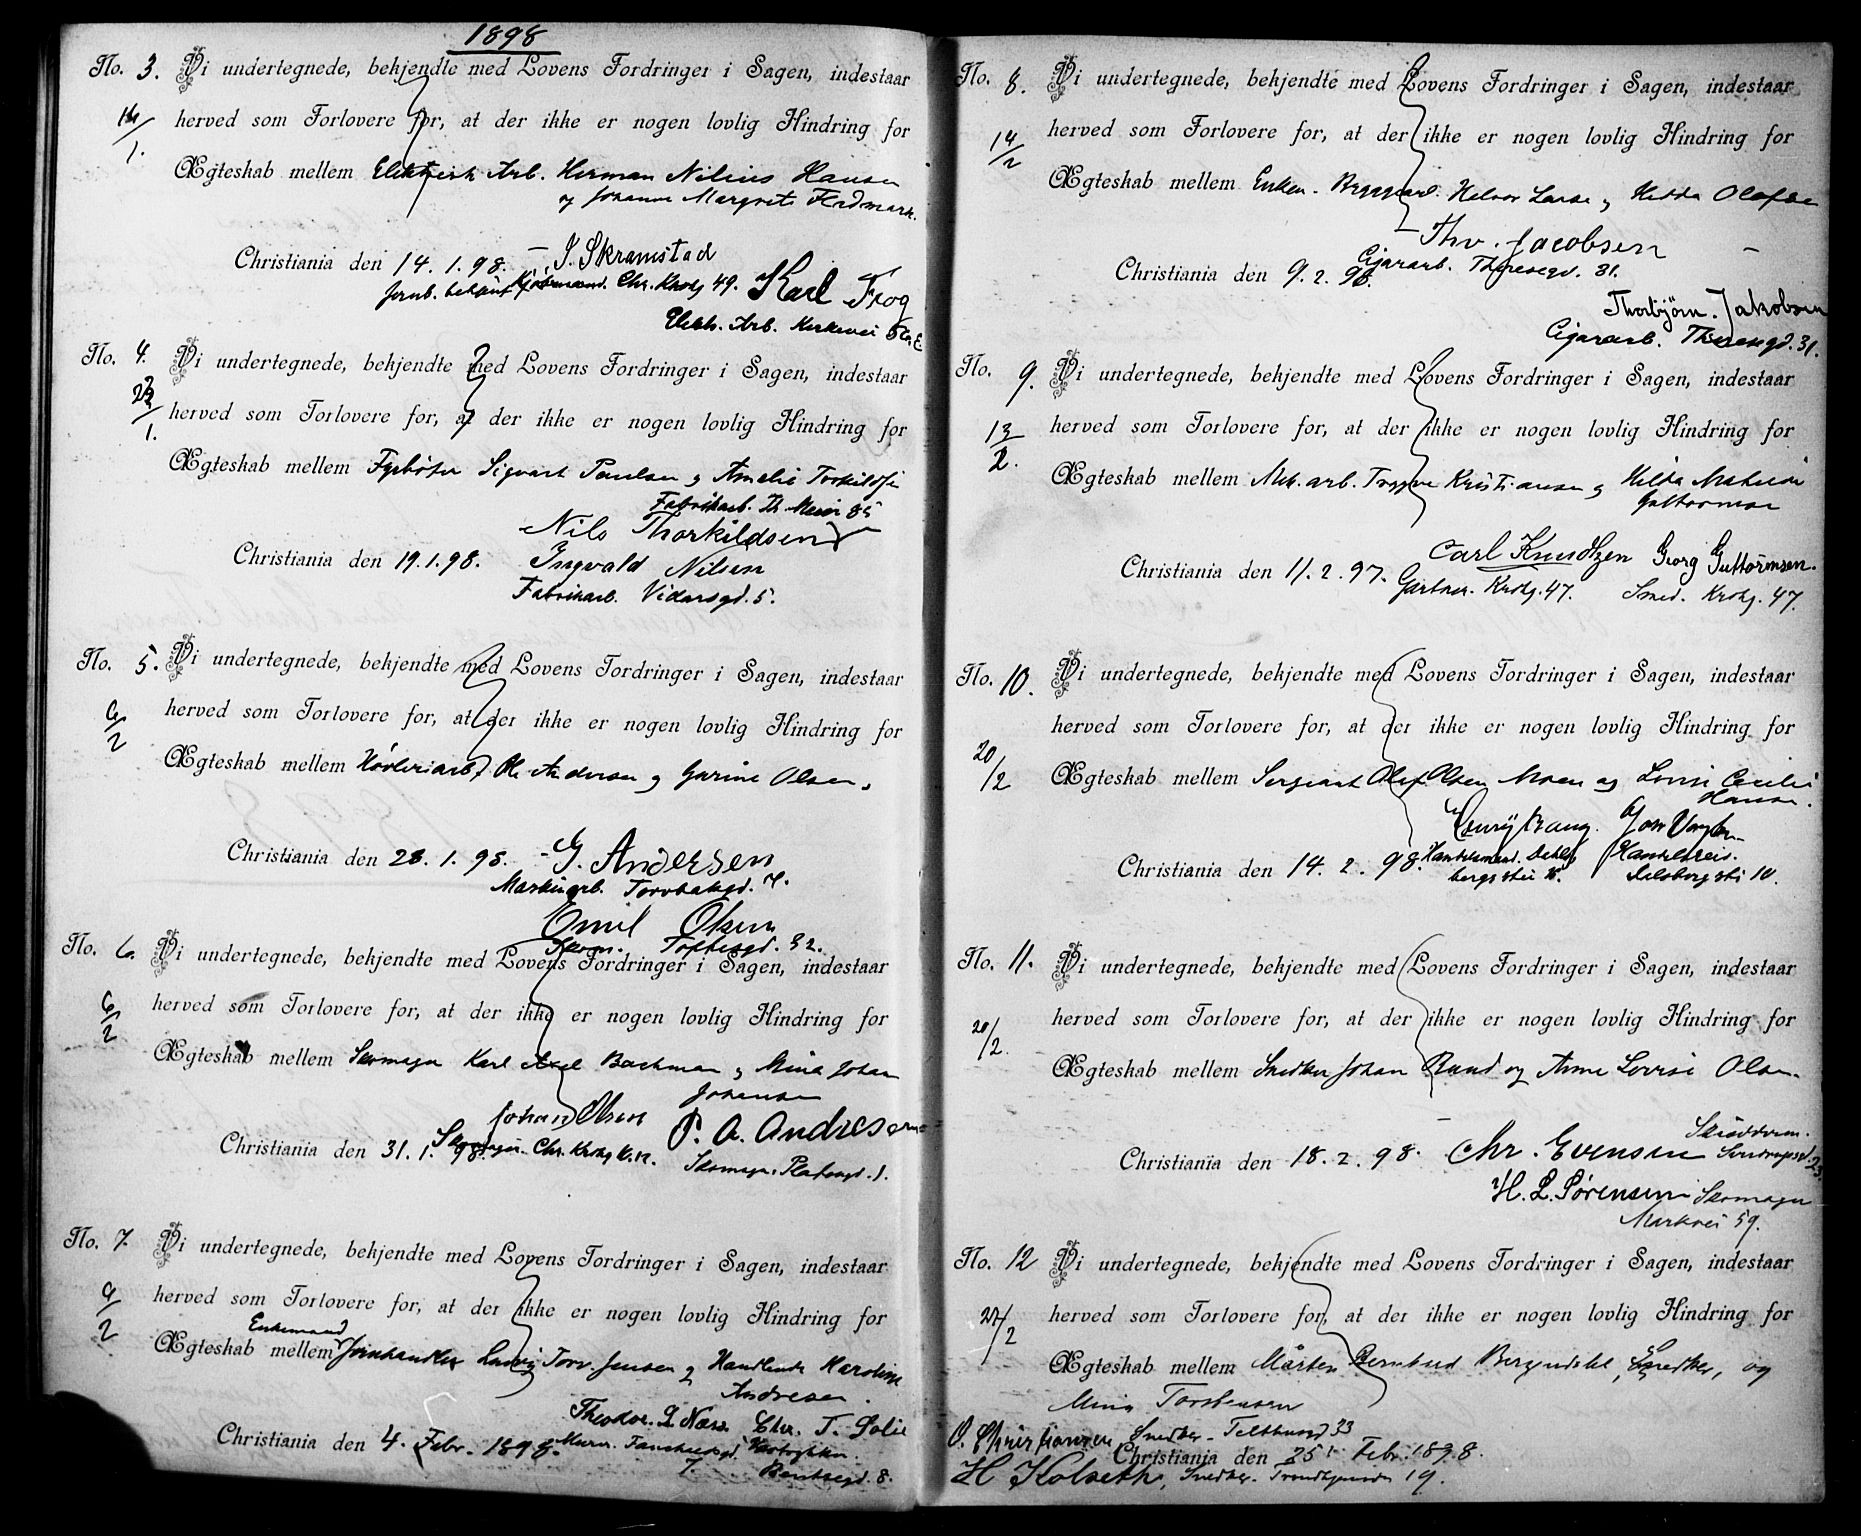 1898
No. 3. Vi undertegnede, bekjendte med Lovens Fordringer i Sagen, indestaar
herved som Forlovere for, at der ikke er nogen lovlig Hindring for
Ægteskab mellem Elektrisk Arb. Herman Nilius Hansen
og Johanne Margrete
Christiania den 14.1.98. – J. Skramstad
Chr. Krohg 49. Karl Frog
Elektr. Arb. Kirkevei
No. 4. Vi undertegnede, bekjendte med Lovens Fordringer i Sagen, indestaar
23/1. herved som Forlovere for, at der ikke er nogen lovlig Hindring for
Ægteskab mellem Fyrbøter Sigvart Paulsen og Amelie Torkildse
Fabrikarb. Th. Meier 85
Nils Thorkildsen
Christiania den 19.1.98. Ingvald Nilsen
Fabrikarb. Vidarsgd. 5.
No. 5. Vi undertegnede, bekjendte med Lovens Fordringer i Sagen, indestaar
6/2 herved som Forlovere for, at der ikke er nogen lovlig Hindring for
Ægteskab mellem Høvleriarb. Ole Andersen og Garine Olsen.
Christiania den 28.1.98. – G. Andersen
Maskinarb. Torvbakgd. 7.
Emil Olsen
Skom. Toftesgd. 32.
No. 6. Vi undertegnede, bekjendte med Lovens Fordringer i Sagen, indestaar
6/2 herved som Forlovere for, at der ikke er nogen lovlig Hindring for
Ægteskab mellem Skomager Karl Axel Bachman og Mina Johan
Johansen
Johan Olsen P. A. Andresen
Christiania den 31.1.98. Skomager. Chr. Krohg
Skomager. Platougd. 1.
No. 7. Vi undertegnede, bekjendte med Lovens Fordringer i Sagen, indestaar
9/2 herved som Forlovere for, at der ikke er nogen lovlig Hindring for
Enkemand
Ægteskab mellem Jernhandler Ludvig Torv. Jensen og Handlende Karoline
Andresen.
Theodor. L Næss Chr. T. Solie
Christiania den 4. Febr. 1898. Murer.
7. Bentsegd. 8.
No. 8. Vi undertegnede, bekjendte med Lovens Fordringer i Sagen, indestaar
14/2 herved som Forlovere for, at der ikke er nogen lovlig Hindring for
Ægteskab mellem Enkem. Halvor Larse og Hedda Olafse
– Thv. Jacobsen –
Christiania den 9.2.98. Cigararb. Theresegd. 31.
Thorbjörn. Jakobsen
Cigararb. Theresegd. 31.
No. 9. Vi undertegnede, bekjendte med Lovens Fordringer i Sagen, indestaar
13/2. herved som Forlovere for, at der ikke er nogen lovlig Hindring for
Ægteskab mellem Mek. arb. Trygve Kristiansen og Hilda Mathilde
Guttormsen
Carl Knudtzen Georg Guttormsen.
Christiania den 11.2.97. Gartner. Krohg. 47. Smed. Krohg. 47.
No. 10. Vi undertegnede, bekjendte med Lovens Fordringer i Sagen, indestaar
herved som Forlovere for, at der ikke er nogen lovlig Hindring for
20/2 Ægteskab mellem Sergeant Olaf Olsen Moen og Lovise Cecilie
Hansen.
Henrÿ Bang.
Christiania den 14.2.98. Handelsmand. Dahls Handelsreis.
bergsstien Delsbergsti 10.
No. 11. Vi undertegnede, bekjendte med Lovens Fordringer i Sagen, indestaar
20/2. herved som Forlovere for, at der ikke er nogen lovlig Hindring for
Ægteskab mellem Snedker Johan Rund og Anne Lovise Olsen.
Skrædderm.
Christiania den 18.2.98. Chr. Evensen Sverdrupsgd. 23.
H. L. Sørensen Skomager
Markvei 59.
No. 12 Vi undertegnede, bekjendte med Lovens Fordringer i Sagen, indestaar
27/2 herved som Forlovere for, at der ikke er nogen lovlig Hindring for
Ægteskab mellem Mårten Bernhard Bergendahl, Snedker, og
Mina Torstensen
O. Christiansen Snedker – Telthusgd 33
Christiania den 25. Febr. 1898.
H Kolseth, Snedker. Trondhjemsvei 19.